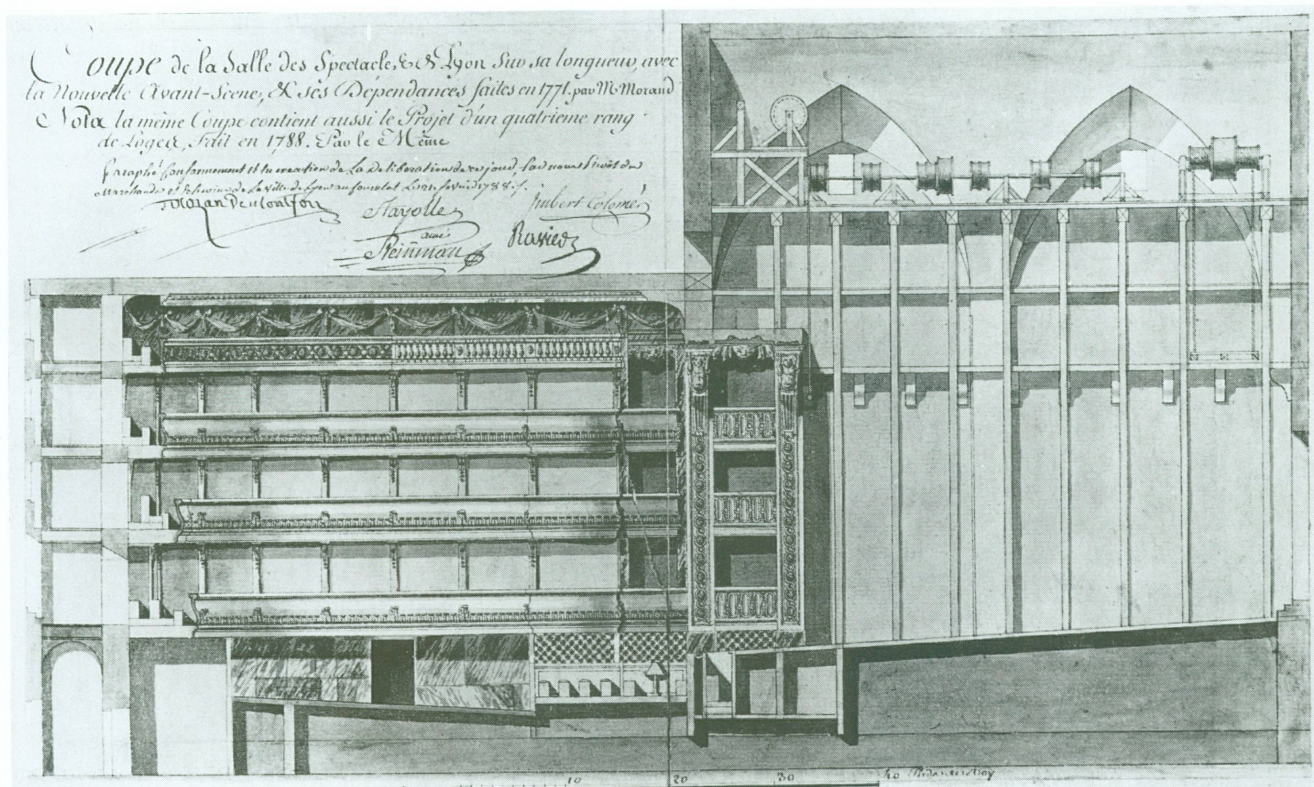 Coupe de la Salle des Spectacles de Lyon Sur sa longueur, avec
la Nouvelle Avant-Scene, & ses Dépendances faites en 1771. par M. Morand
Nota la même Coupe contient aussi le Projet d'un quatrieme rang
de Loges, Fait en 1788. Par le Même
Paraphé Conformement et en execution de La Deliberation de ce jour, par nous Prevôt des
Marchands et Echevins de la Ville de Lyon 1788.
Tolozan De Montfort Fayolle Imbert Colomés
Steinman
10 20 30 40